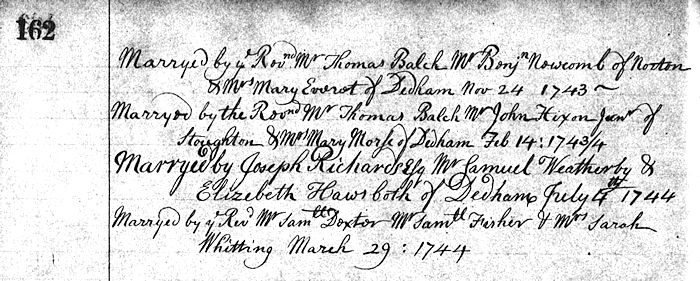 162
Marryed by yͤ Revnd. Mr Thomas Balch Mr Benjn Newcomb of Norton
& Mrs Mary Everet of Dedham Nov 24 1743 ~
Marryed by the Revnd Mr Thomas Balch Mr John Hixon Junr of
Stoughton & Mrs Mary Morse of Dedham Feb 14: 1743/4
Marryed by Joseph Richards Esq Mr Samuel Weatherby &
Elizebeth Haws both of Dedham July 4th 1744
Marryed by yͤ Revd Mr Samll Dexter Mr Samll Fisher & Mrs Sarah
Whitting March 29: 1744